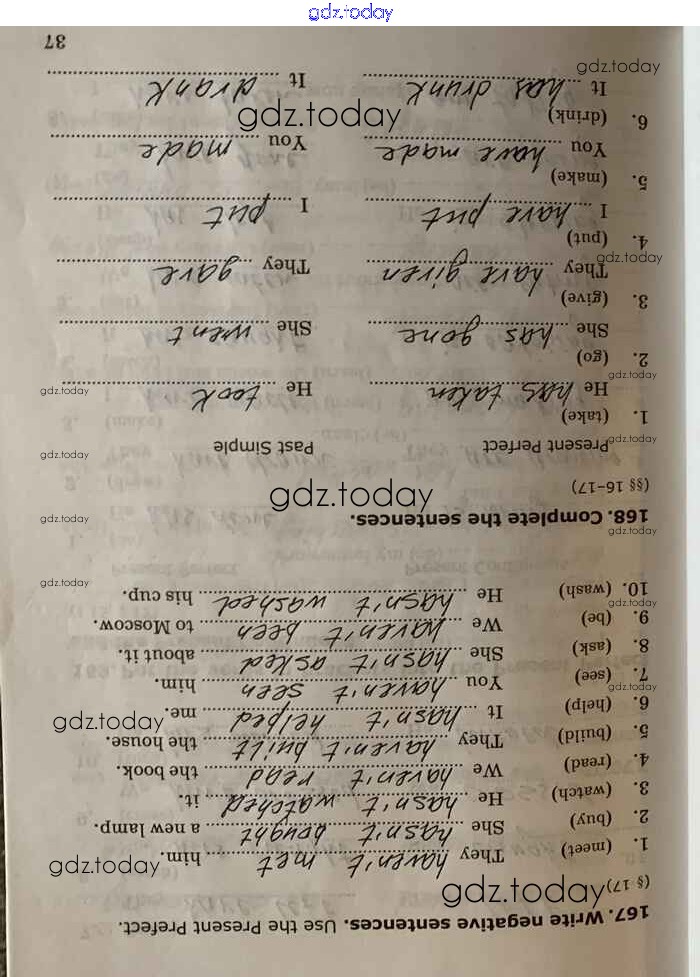 gdz.today
167. Write negative sentences. Use the Present Prefect.
(§ 17)
1. (meet) They haven't met him.
2. (buy) She hasn't bought a new lamp.
3. (watch) He hasn't watched it.
4. (read) We haven't read the book.
5. (build) They haven't built the house.
6. (help) It hasn't helped me.
7. (see) You haven't seen him.
8. (ask) She hasn't asked about it.
9. (be) We haven't been to Moscow.
10. (wash) He hasn't washed his cup.
168. Complete the sentences.
(§§ 16–17)
Present Perfect Past Simple
1. (take)
He has taken He took
2. (go)
She has gone She went
3. (give)
They have given They gave
4. (put)
I have put I put
5. (make)
You have made You made
6. (drink)
It has drunk It drank
37
gdz.today
gdz.today
gdz.today
gdz.today
gdz.today
gdz.today
gdz.today
gdz.today
gdz.today
gdz.today
gdz.today
gdz.today
gdz.today
gdz.today
gdz.today
gdz.today
gdz.today